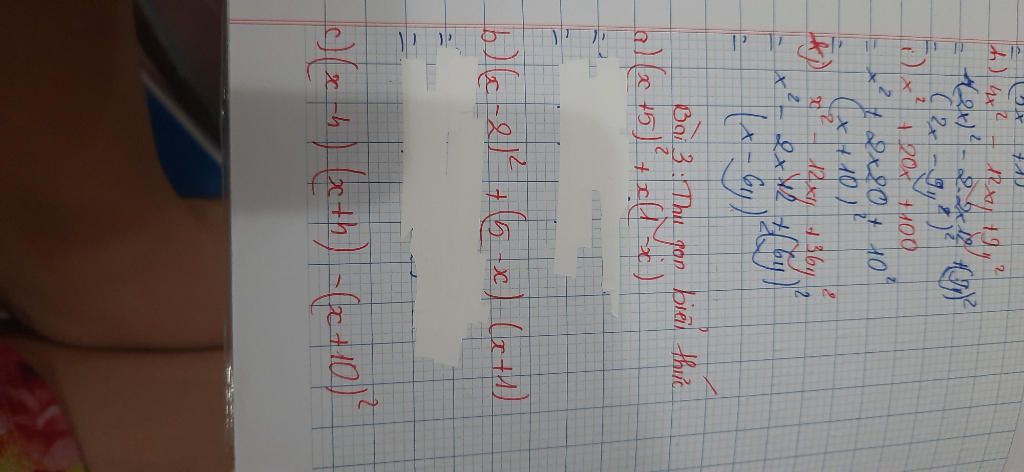 h) 4x² - 12xy + 9y²
= (2x)² - 2.2x
= (2x - 9y)²
i) x² + 20x + 100
= x² + 2x20 + 10²
= (x + 10)²
k) x² - 12xy + 36y²
= x² - 2x12 + (6y)²
= (x - 6y)²
Bài 3: Thu gọn biểu thức
a) (x + 5)² + x(1 - x)
=
=
b) (x - 2)² + (5 - x) (x + 1)
=
=
c) (x - 4) (x + 4) - (x + 10)²